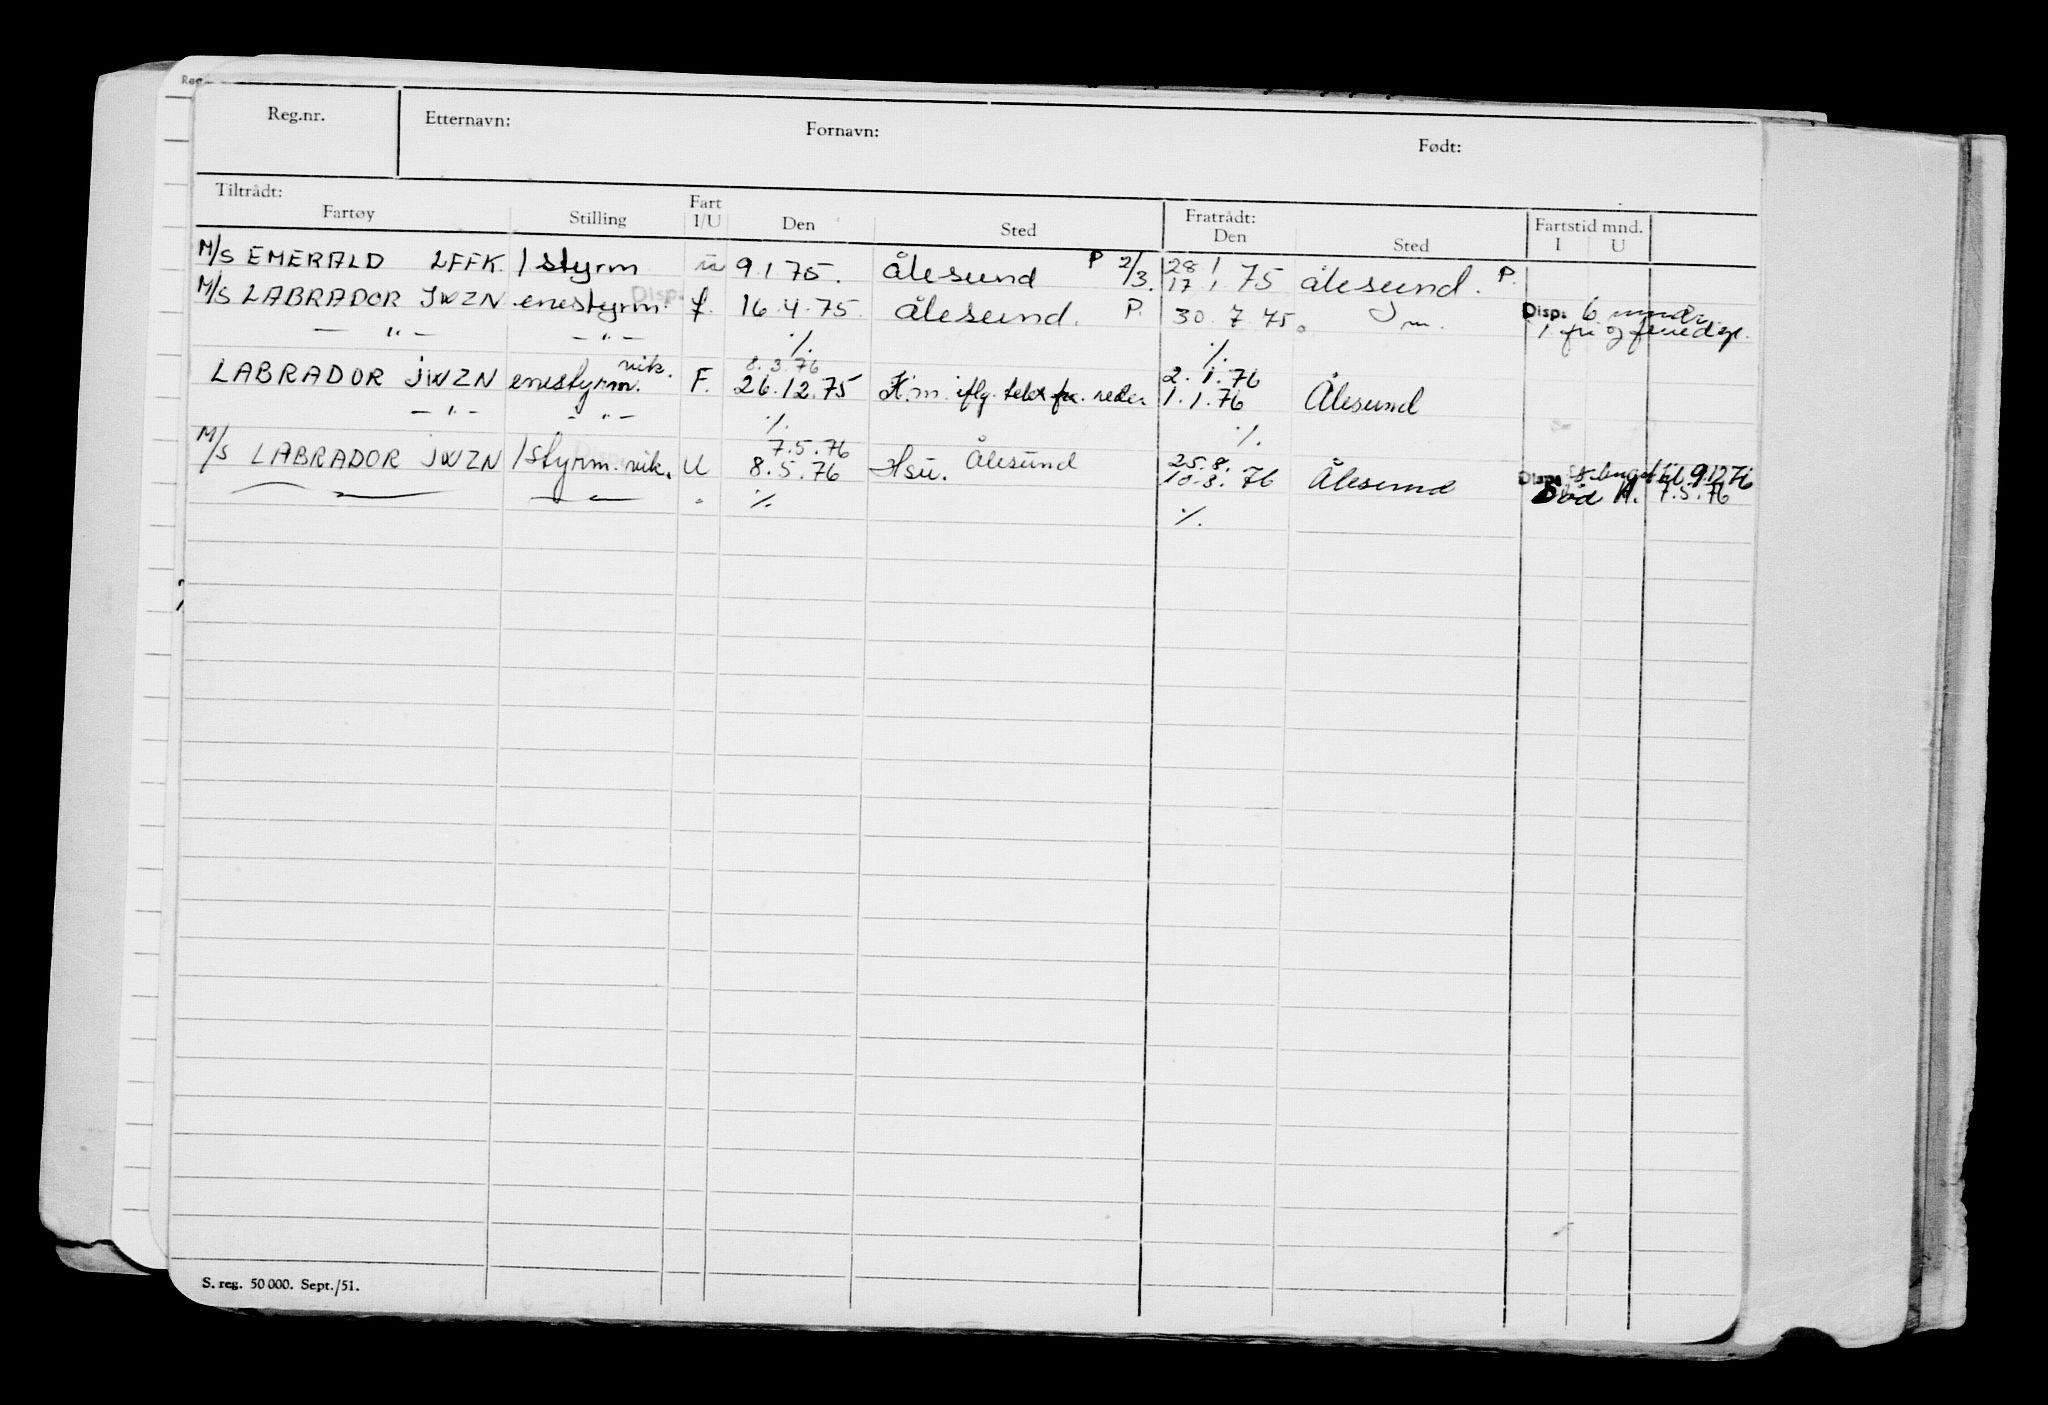 Reg.nr. Etternavn: Fornavn: Født:
Tiltrådt: Fartøy Stilling Fart I/U Den Sted Fratrådt: Den Sted Fartstid mnd. I U
28 1
M/S EMERALD LFFK. 1 styrm u 9.1.75. Ålesund P 2/3. 17.1.75 Ålesund. P.
M/S LABRADOR JWZN enestyrm. f. 16.4.75. Ålesund. P. 30.7.75. Disp. 6 mndr
— " — — " — %. 1 fri og
vik. 8.3.76 %.
2.1.76
LABRADOR JWZN enestyrm. F. 26.12.75 H.m. iflg. telex fra. reder 1.1.76 Ålesund
— " — — " — %.
7.5.76 Ålesund %.
25.8.
M/S LABRADOR JWZN 1 styrm. vik. U 8.5.76 Hsu. 10.8.76 Ålesund Disp. til 9.12.76
7.5.76
" %. %.
S. reg. 50 000. Sept./51.